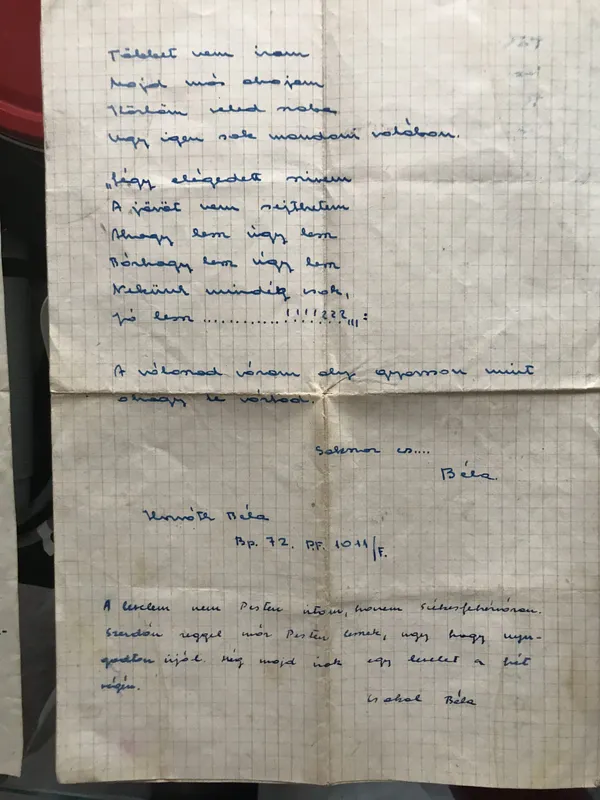 Többet nem irom
Majd más dolgom
Körlöm veled szoba
Ugy igen sok mondani valóbon.
„Légy elégedett szivem
A jövöt nem sejthetem
Ahogy lesz úgy lesz
Bárhogy lesz úgy lesz
Nekünk mindég csak,
jó lesz ............!!!!???,,,:
A válaszod várom oly gyorsan mint
ahogy te vártad.
Sokszor cs....
Béla.
Horváth Béla
Bp. 72. P.F. 1011/F.
A levelem nem Pesten irtam, hanem Székesfehérváron.
Szerdán reggel már Pesten leszek, ugy hogy nyu-
godtan irjál. Még majd irok egy levelet a hét
végén.
csokol Béla